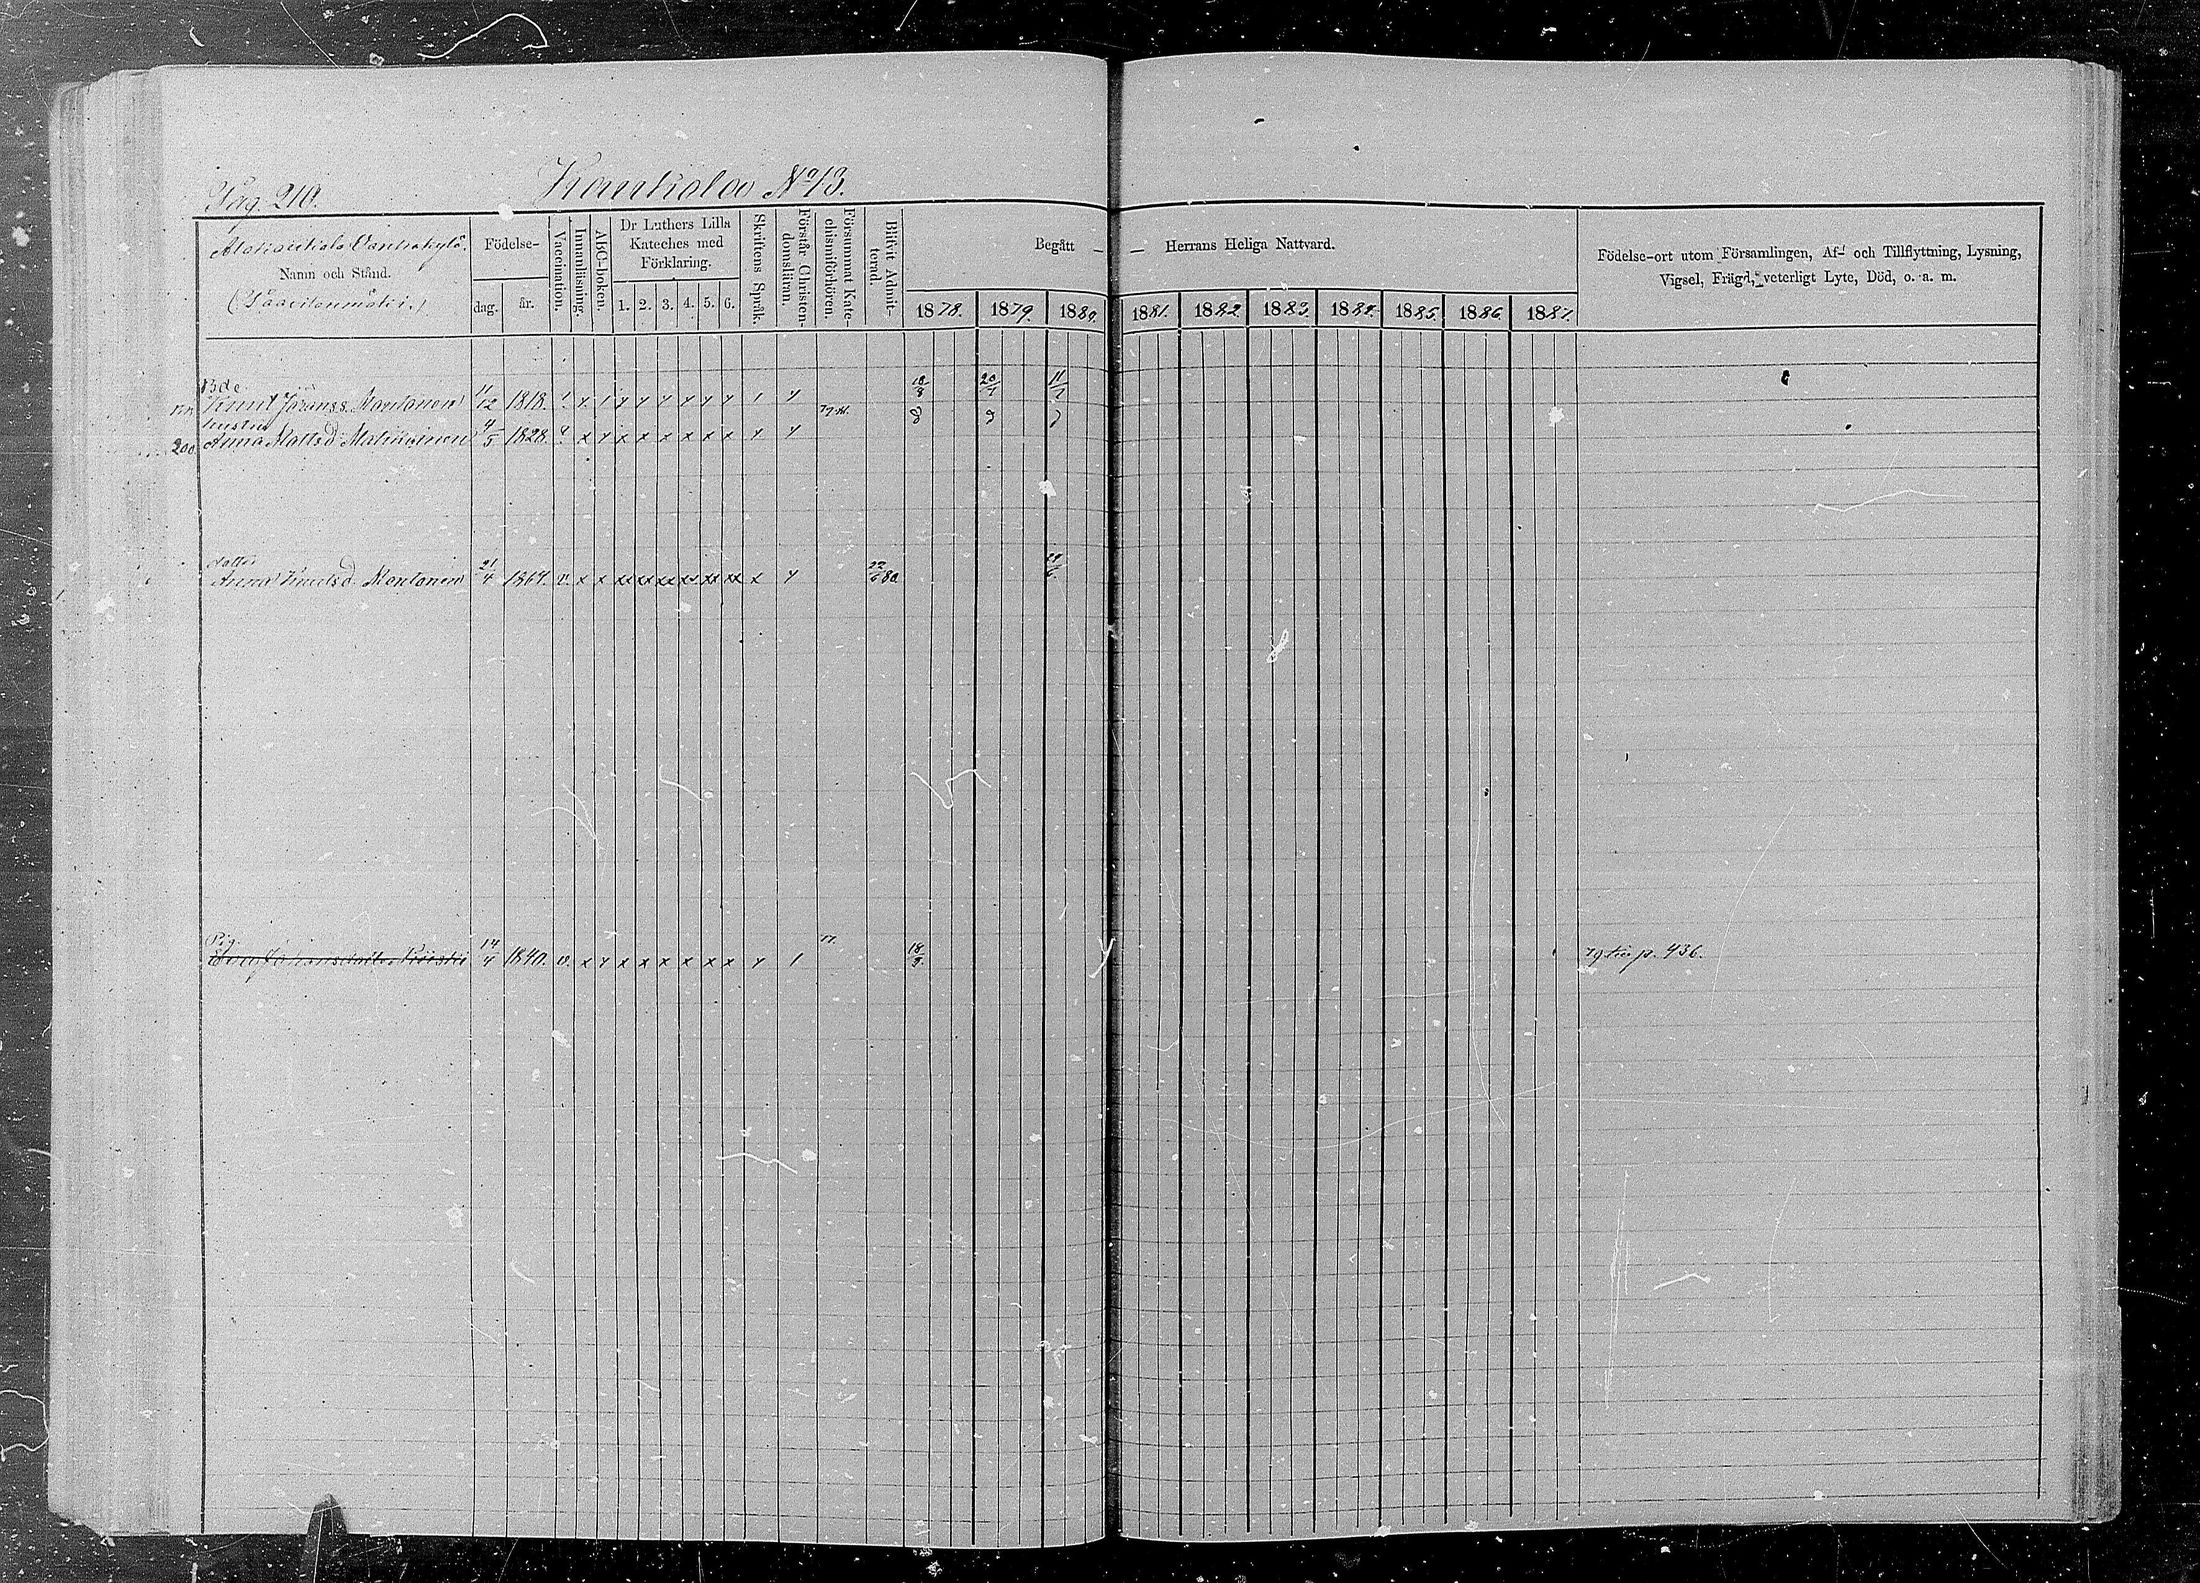 Pag. 210. Kankala No 13.
Namn och Stånd.
Födelse-
dag. år.
Vaccination.
Innanläsning.
ABC-boken.
Dr Luthers Lilla
Kateches med
Förklaring.
1. 2. 3. 4. 5. 6.
Skriftens Språk.
Förstår Christen-
domsläran.
Försummat Kate-
chismiförhören.
Blifvit Admit-
terad.
Begått — — Herrans Heliga Nattvard.
1878. 1879. 1880. 1881. 1882. 1883. 1884. 1885. 1886. 1887.
Födelse-ort utom Församlingen, Af- och Tillflyttning, Lysning,
Vigsel, Frägd, veterligt Lyte, Död, o. a. m.
Bde
Knut Jöranss. Montonen 11/12 1818. 1 x 1 x x x x x x 1 x 18/8 20/7 11/7
hustru
200 Anna Mattsd. 4/5 1828. x x x x x x x x x x
dotter
Anna Knutsd. Montonen 21/4 1864. v. x x xx xx xx xx xx xx x x 22/6 80
Pig.
14/4 1840. v. x x x x x x x x x 1 77. 18/9 79 tir p. 436.